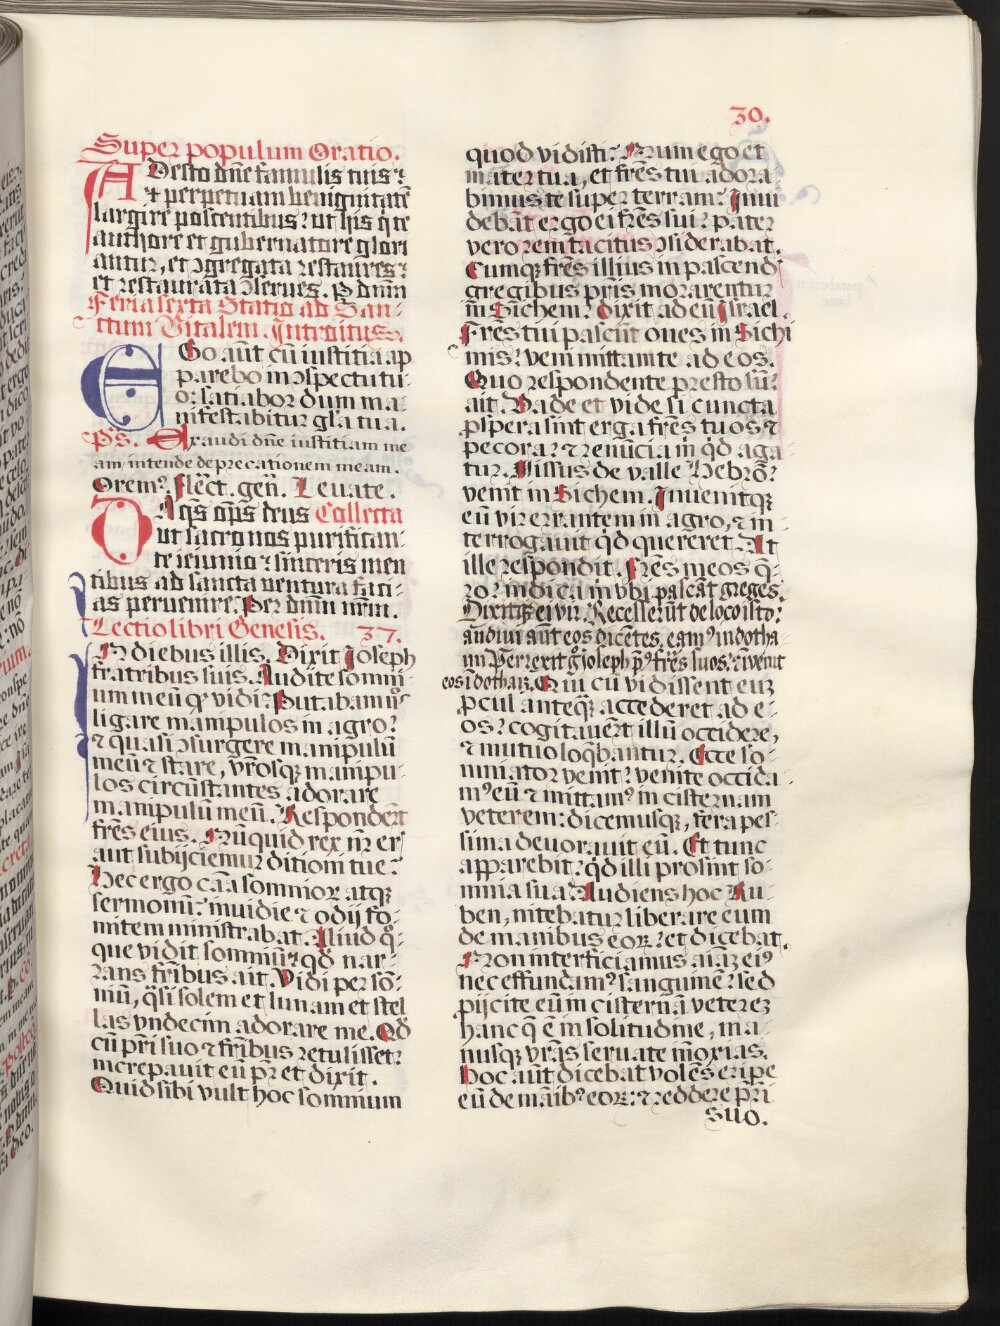 30.
Super populum Oratio.
ADesto dñe famulis tuis ⁊
⁊ perpetuam benignitatẽ
largire poscentibus: ut his q̃ te
authore et gubernatore glori
antur, et ɔgregata restaures ⁊
et restaurata ɔserues. P dñm
Feria sexta Statio ad San-
ctum Vitalem. Introitus.
EGo aũt cũ iustitia ap
parebo in ɔspectu tu-
o: satiabor dum ma-
nifestabitur gl̃a tua.
p̃s. Exaudi dñe iustitiam me
am, intende deprecationem meam.
Oremꝰ. Flect. gen̄. Leuate.
DA q̃s om̃ps deus Collecta
ut sacro nos purifican
te ieiunio: sinceris men
tibus ad sancta uentura faci-
as peruenire. Per dñm nr̃m.
Lectio libri Genesis. 37.
IN diebus illis. Dixit Joseph
fratribus suis. Audite somni-
um meũ qꝫ vidi: Putabam nos
ligare manipulos in agro:
⁊ quasi ɔsurgere manipulũ
meũ ⁊ stare, vr̃osqꝫ manipu-
los circũstantes adorare
manipulũ meũ. Responderũt
fr̃es eius. Nũquid rex nr̃ eris
aut subijciemur ditioni tue?
Hec ergo cãa somnioꝝ atqꝫ
sermonũ: inuidie ⁊ odij fo-
mitem ministrabat. Aliud q̃-
que vidit somniũ: qđ nar-
rans fr̃ibus ait. Vidi per sõ-
niũ, q̃si solem et lunam et stel
las vndecim adorare me. Qđ
cũ pr̃i suo ⁊ fr̃ibus retulisset:
increpauit eũ pr̃ et dixit.
Quid sibi vult hoc somnium
quod vidisti? Num ego et
mater tua, et fr̃es tui adora-
bimus te super terram? Inui
debãt ergo ei fr̃es sui: pater
vero rem tacitus ɔsiderabat.
Cumqꝫ fr̃es illius in pascendis
gregibus pr̃is morarentur
ĩn Sichem: Dixit ad eũ Israel.
Fr̃es tui pascũt oues in Sichi
mis: veni mittam te ad eos.
Quo respondente presto sũ:
ait. Vade et vide si cuncta
ꝓspera sint erga fr̃es tuos ⁊
pecora: ⁊ renũcia m̃ qđ aga-
tur. Missus de valle Hebrõ:
venit in Sichem. Inuenitqꝫ
eũ vir errantem in agro, ⁊ in
terrogauit qđ quereret. At
ille respondit. Fr̃es meos q̃-
ro: indica m̃ vbi pascãt greges.
Dixitqꝫ ei vir. Recesserũt de loco isto:
audiui aũt eos dicẽtes. eamꝰ in dotha
im Perrexit g̊ Joseph p̃ꝰ fr̃es suos: ⁊ ĩuenit
eos ĩ dothaiꝫ. Qui cũ vidissent eũ
ꝓcul anteqꝫ accederet ad e-
os: cogitauerũt illũ occidere,
⁊ mutuo loq̃bantur. Ecce so-
mniator venit: venite occida
mꝰ eũ ⁊ mittamꝰ in cisternam
veterem: dicemusqꝫ, fera pes-
sima deuorauit eũ. Et tunc
apparebit: qđ illi prosint so-
mnia sua. Audiens hoc Ru-
ben, nitebatur liberare eum
de manibus eoꝝ: et dicebat.
Non interficiamus aĩaꝫ eiꝰ
nec effundamꝰ sanguinẽ: sed
pijcite eũ in cisternã vetereꝫ
hanc q̃ ẽ in solitudine, ma-
nusqꝫ vr̃as seruate ĩnoxias.
Hoc aũt dicebat volẽs eripe
eũ de mãibꝰ eoꝝ: ⁊ reddere pr̃i
suo.